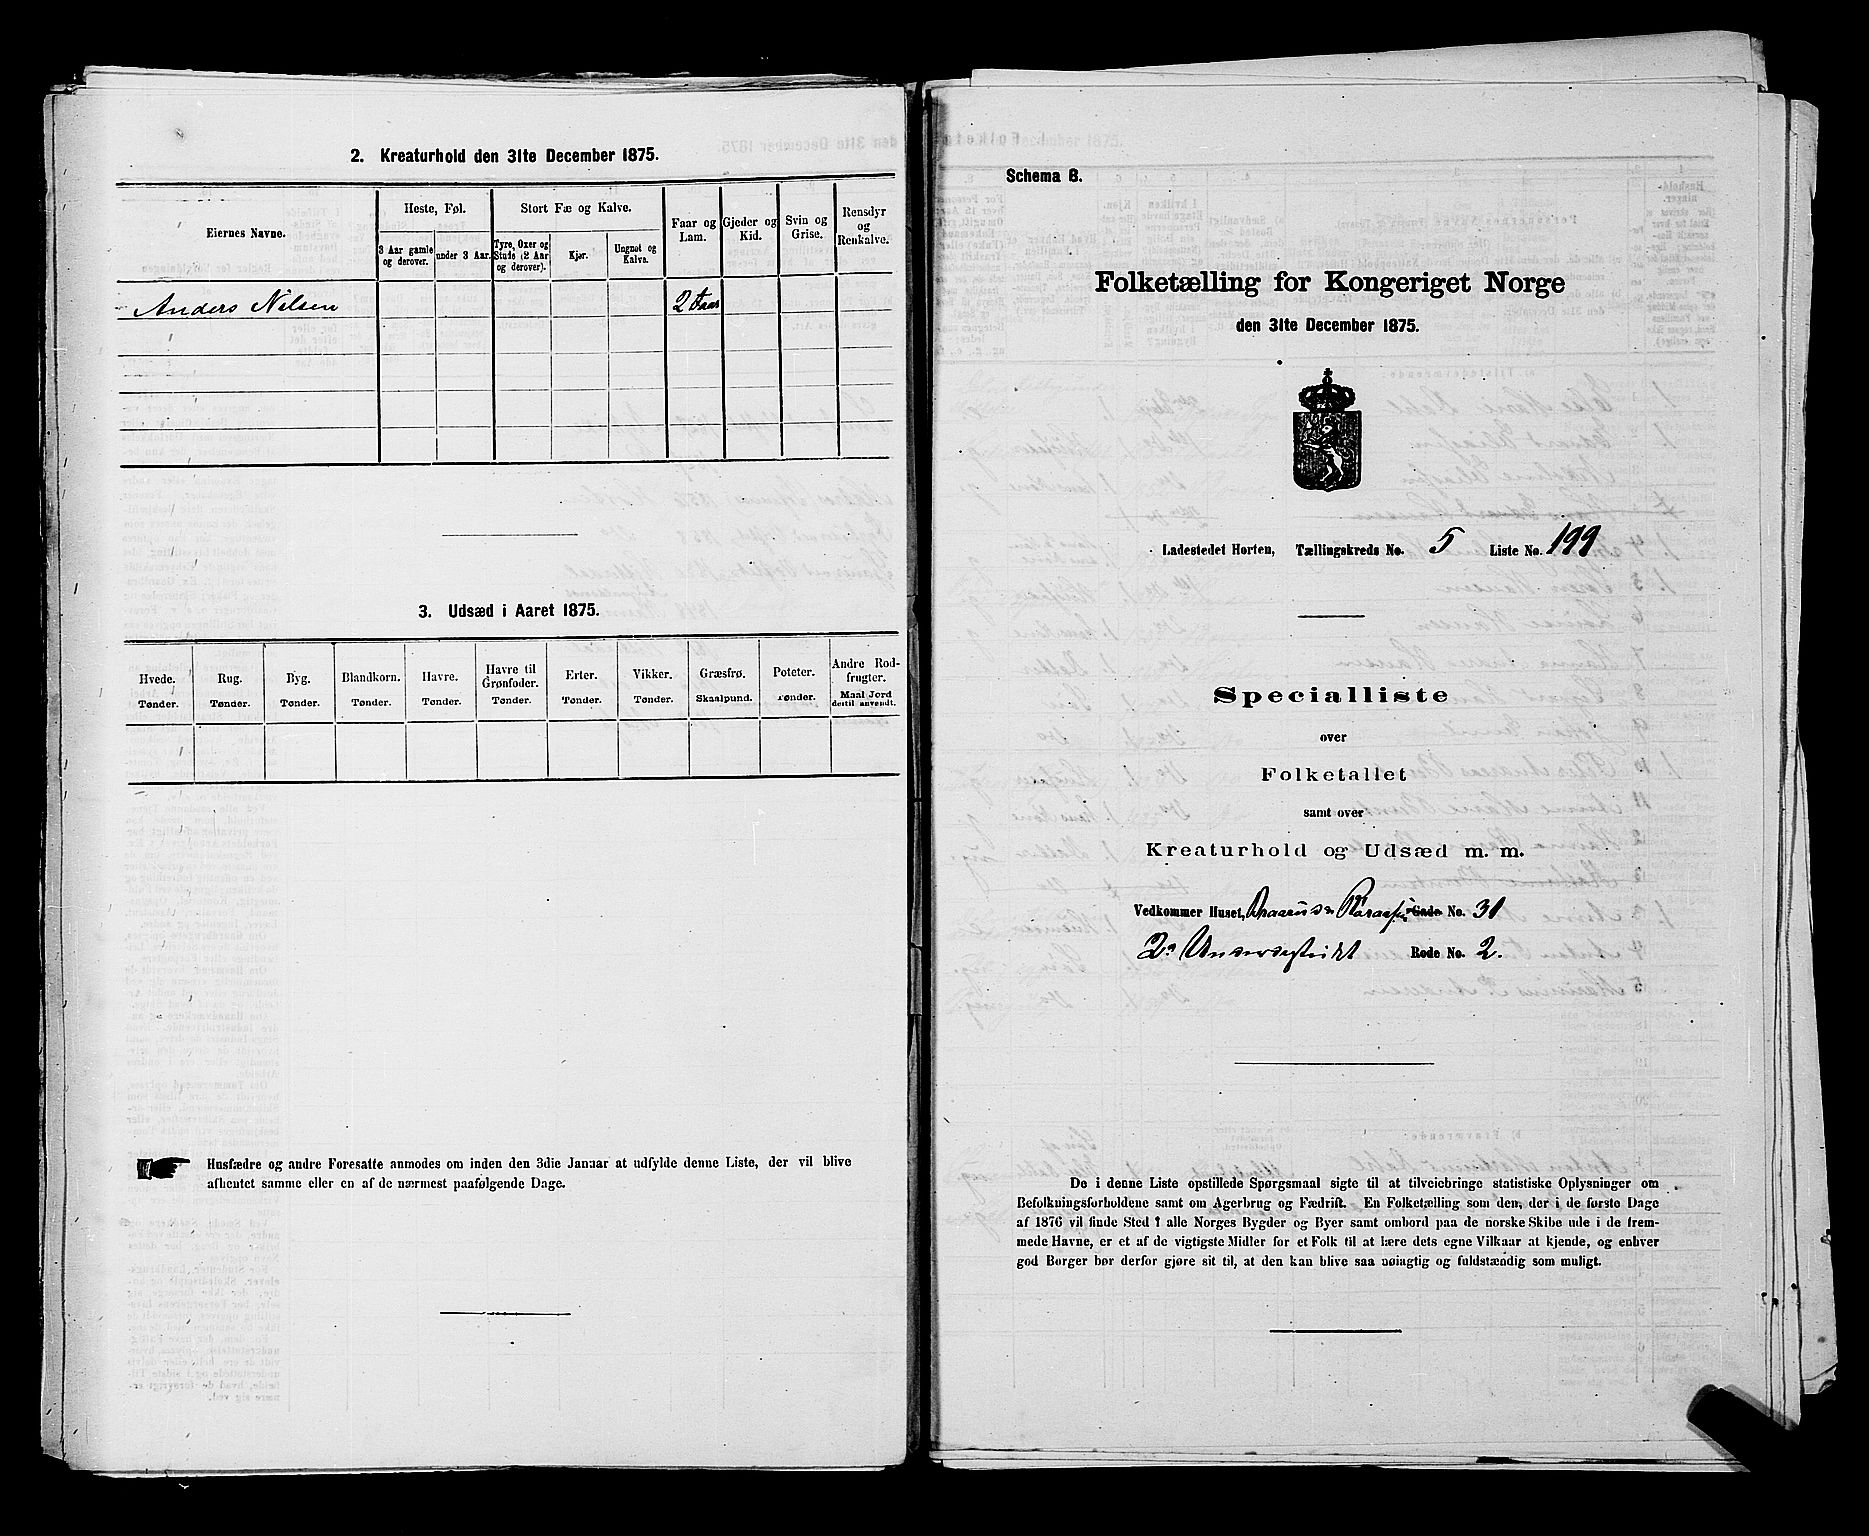 2. Kreaturhold den 31te December 1875.
Eiernes Navne.
Heste, Føl.
3 Aar gamle og derover.
under 3 Aar.
Stort Fæ og Kalve.
Tyre, Oxer og Stude (2 Aar og derover).
Kjør.
Ungnøt og Kalve.
Faar og Lam.
Gjeder og Kid.
Svin og Grise.
Rensdyr og Renkalve.
Anders Nilsen 2 Faar
3. Udsæd i Aaret 1875.
Hvede. Rug. Byg. Blandkorn. Havre. Havre til Grønfoder. Erter. Vikker. Græsfrø. Poteter. Andre Rodfrugter.
Tønder. Tønder. Tønder. Tønder. Tønder. Tønder. Tønder. Tønder. Skaalpund. Tønder. Maal Jord dertil anvendt.
Husfædre og andre Foresatte anmodes om inden den 3die Januar at udfylde denne Liste, der vil blive
afhentet samme eller en af de nærmest paafølgende Dage.
Schema B.
Folketælling for Kongeriget Norge
den 31te December 1875.
Ladestedet Horten, Tællingskreds No. 5 Liste No. 199
Specialliste
over
Folketallet
samt over
Kreaturhold og Udsæd m. m.
Vedkommer Huset, Gade No. 31
Rode No. 2.
De i denne Liste opstillede Spørgsmaal sigte til at tilveiebringe statistiske Oplysninger om
Befolkningsforholdene samt om Agerbrug og Fædrift. En Folketælling som den, der i de første Dage
af 1876 vil finde Sted i alle Norges Bygder og Byer samt ombord paa de norske Skibe ude i de frem-
mede Havne, er et af de vigtigste Midler for et Folk til at lære dets egne Vilkaar at kjende, og enhver
god Borger bør derfor gjøre sit til, at den kan blive saa nøiagtig og fuldstændig som muligt.